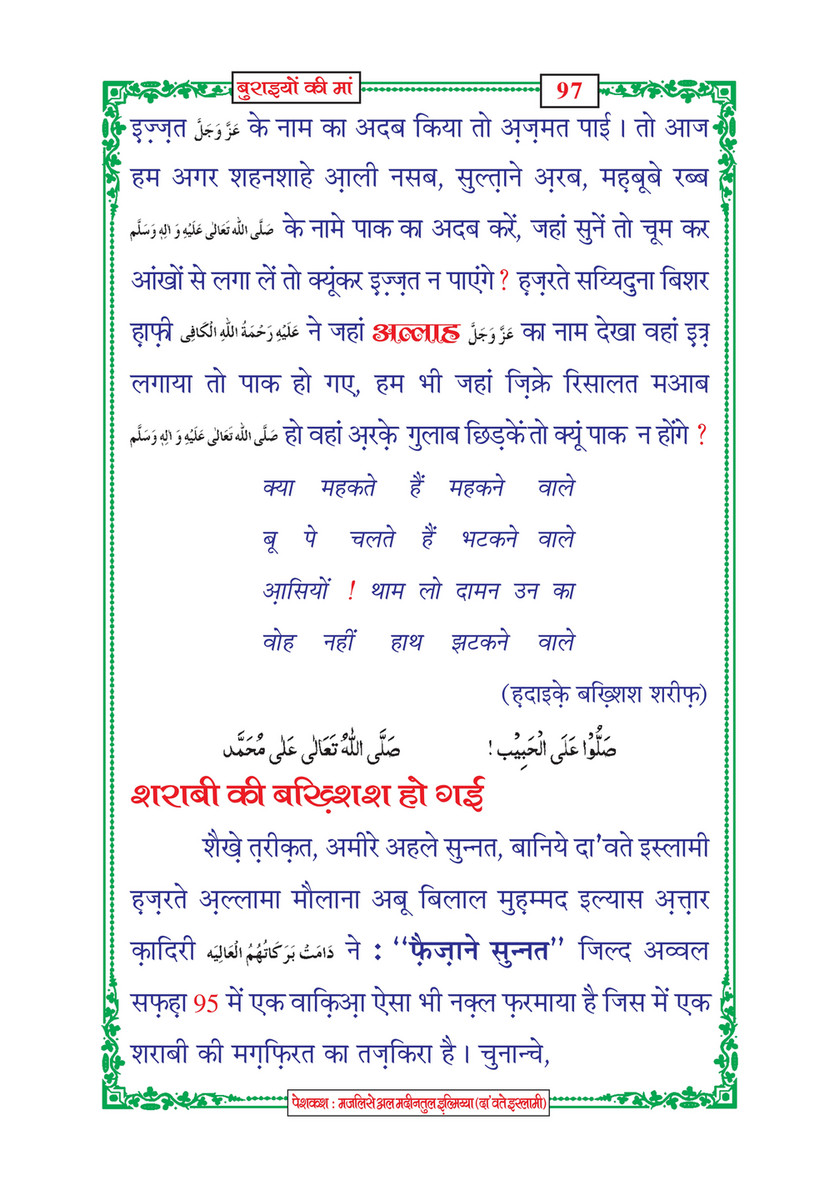 बुराइयों की मां
97
इ़ज़्ज़त عَزَّ وَجَلَّ के नाम का अदब किया तो अ़ज़मत पाई । तो आज
हम अगर शहनशाहे आ़ली नसब, सुल्त़ाने अ़रब, मह़बूबे रब्ब
صَلَّى اللهُ تَعَالٰى عَلَيْهِ وَ اٰلِهٖ وَسَلَّم के नामे पाक का अदब करें, जहां सुनें तो चूम कर
आंखों से लगा लें तो क्यूंकर इ़ज़्ज़त न पाएंगे ? ह़ज़रते सय्यिदुना बिशर
ह़ाफ़ी عَلَيْهِ رَحْمَةُ اللهِ الْكَافِى ने जहां अल्लाह عَزَّ وَجَلَّ का नाम देखा वहां इ़त़्र
लगाया तो पाक हो गए, हम भी जहां ज़िक्रे रिसालत मआब
صَلَّى اللهُ تَعَالٰى عَلَيْهِ وَ اٰلِهٖ وَسَلَّم हो वहां अ़रक़े गुलाब छिड़कें तो क्यूं पाक न होंगे ?
क्या महकते हैं महकने वाले
बू पे चलते हैं भटकने वाले
आ़सियों ! थाम लो दामन उन का
वोह नहीं हाथ झटकने वाले
(ह़दाइक़े बख़्शिश शरीफ़)
صَلُّوْا عَلَى الْحَبِيْب ! صَلَّى اللهُ تَعَالٰى عَلٰى مُحَمَّد
शराबी की बख़्शिश हो गई
शैख़े त़रीक़त, अमीरे अहले सुन्नत, बानिये दा'वते इस्लामी
ह़ज़रते अ़ल्लामा मौलाना अबू बिलाल मुह़म्मद इल्यास अ़त्त़ार
क़ादिरी دَامَتْ بَرَكَاتُهُمُ الْعَالِيَه ने : ‘‘फ़ैज़ाने सुन्नत’’ जिल्द अव्वल
सफ़ह़ा 95 में एक वाक़िआ़ ऐसा भी नक़्ल फ़रमाया है जिस में एक
शराबी की मग़फ़िरत का तज़किरा है । चुनान्चे,
पेशकश : मजलिसे अल मदीनतुल इ़ल्मिय्या (दा'वते इस्लामी)